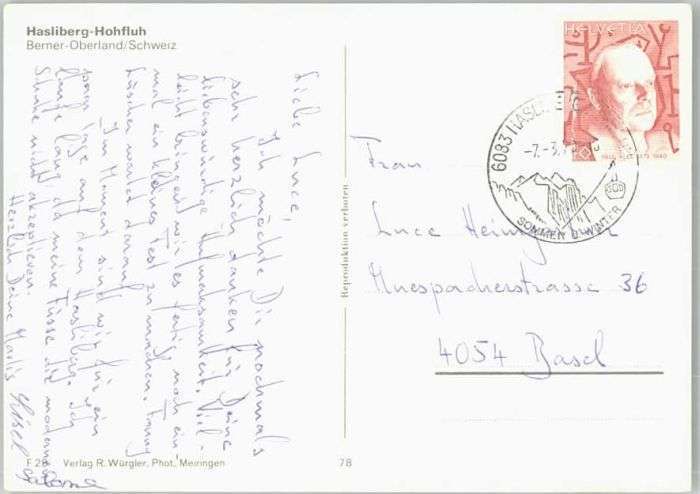 Hasliberg-Hohfluh
Berner-Oberland/Schweiz
Liebe Luce,
Ich möchte Dir nochmals
sehr herzlich danken für Deine
liebenswürdige Aufmerksamkeit. Viel-
leicht bringen wir es fertig noch ein-
mal ein kleines Fest zu machen.
Lüscher würde darauf.
Im Moment sind wir für ein
paar Tage auf dem Hasliberg. Ich
laufe lang, da meine Füsse die modernen
Schuhe nicht akzeptieren.
Herzlich Deine Marlis
F 28 Verlag R. Würgler, Phot., Meiringen
78
Reproduktion verboten
HELVETIA
PAUL KLEE 1879-1940
6083 HASLIBERG
-7.-3.
SOMMER U. WINTER
Frau
Luce
Knespacherstrasse 36
4054 Basel